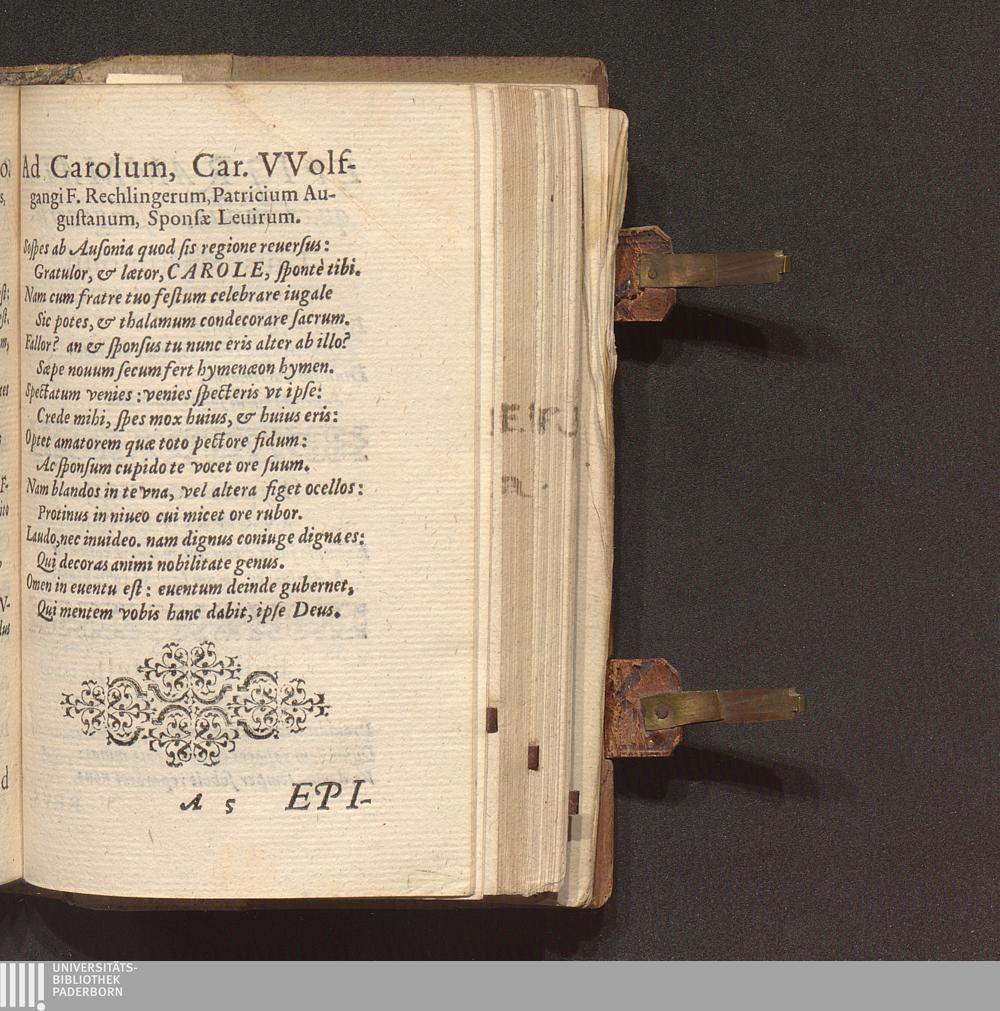 Ad Carolum, Car. VVolf-
gangi F. Rechlingerum, Patricium Au-
guſtanum, Sponſæ Leuirum.
Soſpes ab Auſonia quod ſis regione reuerſus:
Gratulor, & lætor, CAROLE, ſpontè tibi.
Nam cum fratre tuo feſtum celebrare iugale
Sic potes, & thalamum condecorare ſacrum.
Fallor? an & ſponſus tu nunc eris alter ab illo?
Sæpe nouum ſecum fert hymenæon hymen.
Spectatum venies: venies ſpecteris vt ipſe:
Crede mihi, ſpes mox huius, & huius eris:
Optet amatorem quæ toto pectore fidum:
Ac ſponſum cupido te vocet ore ſuum.
Nam blandos in te vna, vel altera figet ocellos:
Protinus in niueo cui micet ore rubor.
Laudo, nec inuideo. nam dignus coniuge digna es:
Qui decoras animi nobilitate genus.
Omen in euentu eſt: euentum deinde gubernet,
Qui mentem vobis hanc dabit, ipſe Deus.
A 5 EPI-
UNIVERSITÄTS-
BIBLIOTHEK
PADERBORN